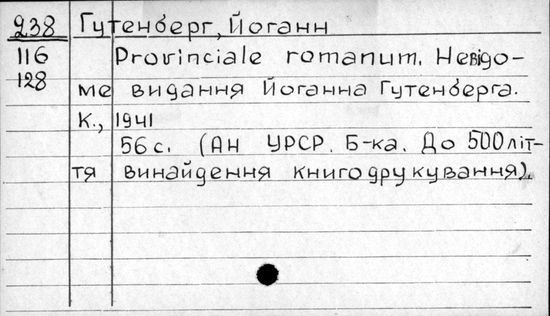 238 Гутенберг, Йоганн
116 Provinciale romanum. Невідо-
128 ме видання Йоганна Гутенберга.
К., 1941
56 с. (Ан УРСР. Б-ка. До 500 літ-
тя винайдення книгодрукування).